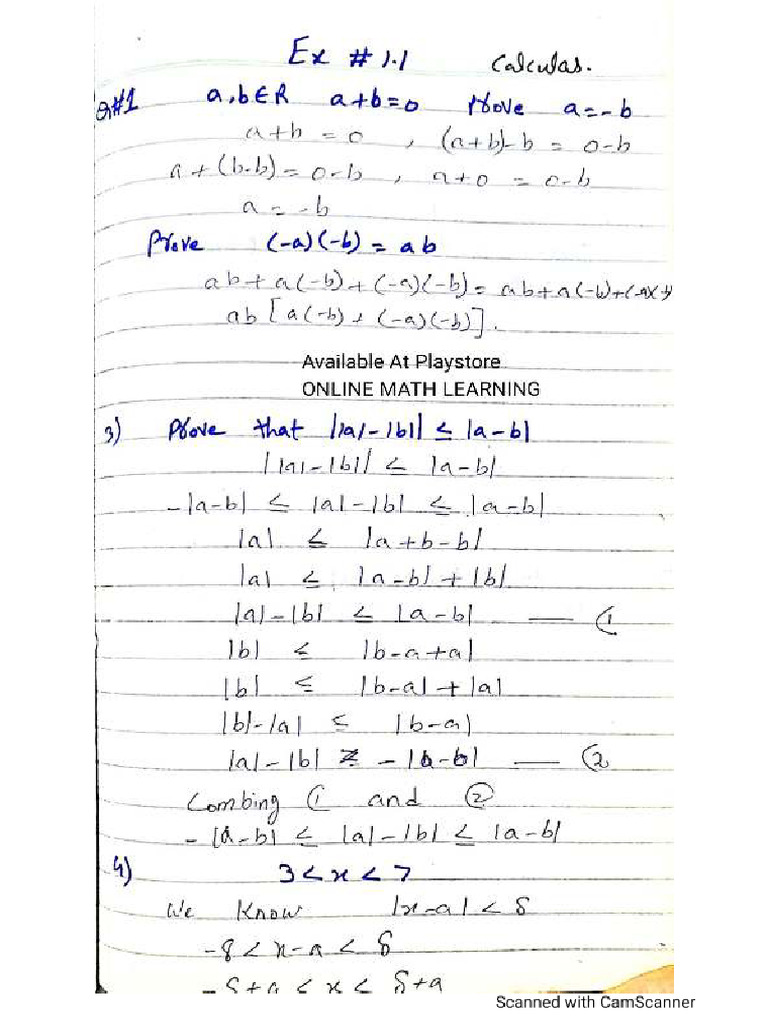 Ex # 1.1 Calculas.
Q#1 a,b∈R a+b=0 Prove a=-b
a+b = 0 , (a+b)-b = 0-b
a+(b-b) = 0-b , a+0 = 0-b
a = -b
Prove (-a)(-b) = ab
ab+a(-b)+(-a)(-b) = ab+a(-b)+(-a)(
ab[a(-b)+(-a)(-b)].
Available At Playstore
ONLINE MATH LEARNING
3) Prove that ||a|-|b|| ≤ |a-b|
||a|-|b|| ≤ |a-b|
-|a-b| ≤ |a|-|b| ≤ |a-b|
|a| ≤ |a+b-b|
|a| ≤ |a-b|+|b|
|a|-|b| ≤ |a-b| — ①
|b| ≤ |b-a+a|
|b| ≤ |b-a|+|a|
|b|-|a| ≤ |b-a|
|a|-|b| ≥ -|a-b| — ②
Combing ① and ②
-|a-b| ≤ |a|-|b| ≤ |a-b|
4) 3<x<7
We Know |x-a|<δ
-δ<x-a<δ
-δ+a<x<δ+a
Scanned with CamScanner